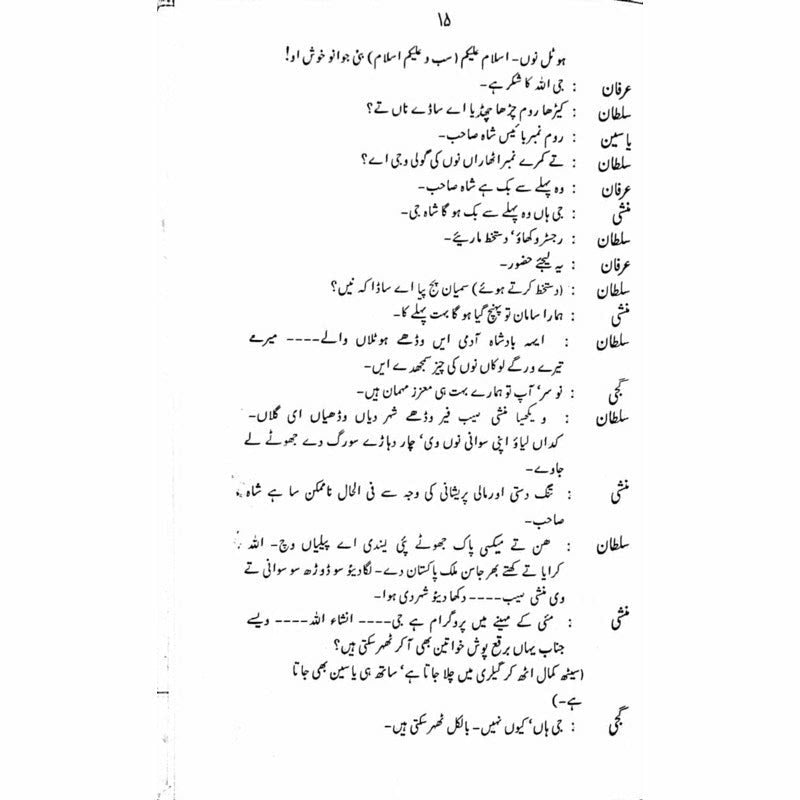 ۱۵
ہوٹل نوں۔ اسلام علیکم (سب و علیکم اسلام) بئی جوانو خوش او!
عرفان : جی اللہ کا شکر ہے۔
سلطان : کیڑھا روم چڑھا چھڈیا اے ساڈے ناں تے؟
یاسین : روم نمبر بائیس شاہ صاحب۔
سلطان : تے کمرے نمبر اٹھاراں نوں کی گولی وجی اے؟
عرفان : وہ پہلے سے بک ہے شاہ صاحب۔
منشی : جی ہاں وہ پہلے سے بک ہو گا شاہ جی۔
سلطان : رجسٹر وکھاؤ‘ دستخط ماریئے۔
عرفان : یہ لیجئے حضور۔
سلطان : (دستخط کرتے ہوئے) سمیان پج پیا اے ساڈا کہ نیں؟
منشی : ہمارا سامان تو پہنچ گیا ہو گا بہت پہلے کا۔
سلطان : ایہہ بادشاہ آدمی ایں وڈھے ہوٹلاں والے۔۔۔۔ میرے
تیرے ورگے لوکاں نوں کی چیز سمجھدے ایں۔
گجی : نو سر‘ آپ تو ہمارے بہت ہی معزز مہمان ہیں۔
سلطان : ویکھیا منشی سیب فیر وڈھے شہر دیاں وڈھیاں ای گلاں۔
کداں لیاؤ اپنی سوانی نوں وی‘ چار دہاڑے سورگ دے جھوٹے لے
جاوے۔
منشی : تنگ دستی اور مالی پریشانی کی وجہ سے فی الحال ناممکن سا ہے شاہ
صاحب۔
سلطان : ھن تے میکسی پاک جھوٹے پئی لیندی اے پیلیاں وچ۔ اللہ
کرایا تے کھتے بھر جاسن ملک پاکستان دے۔ لگا دیئو سو ڈوڑھ سو سوانی تے
وی منشی سیب۔۔۔۔ دکھا دیئو شہر دی ہوا۔
منشی : مئی کے مہینے میں پروگرام ہے جی۔۔۔۔ انشاء اللہ۔۔۔۔ ویسے
جناب یہاں برقع پوش خواتین بھی آ کر ٹھہر سکتی ہیں؟
(سیٹھ کمال اٹھ کر گیلری میں چلا جاتا ہے‘ ساتھ ہی یاسین بھی جاتا
ہے۔)
گجی : جی ہاں‘ کیوں نہیں۔ بالکل ٹھہر سکتی ہیں۔